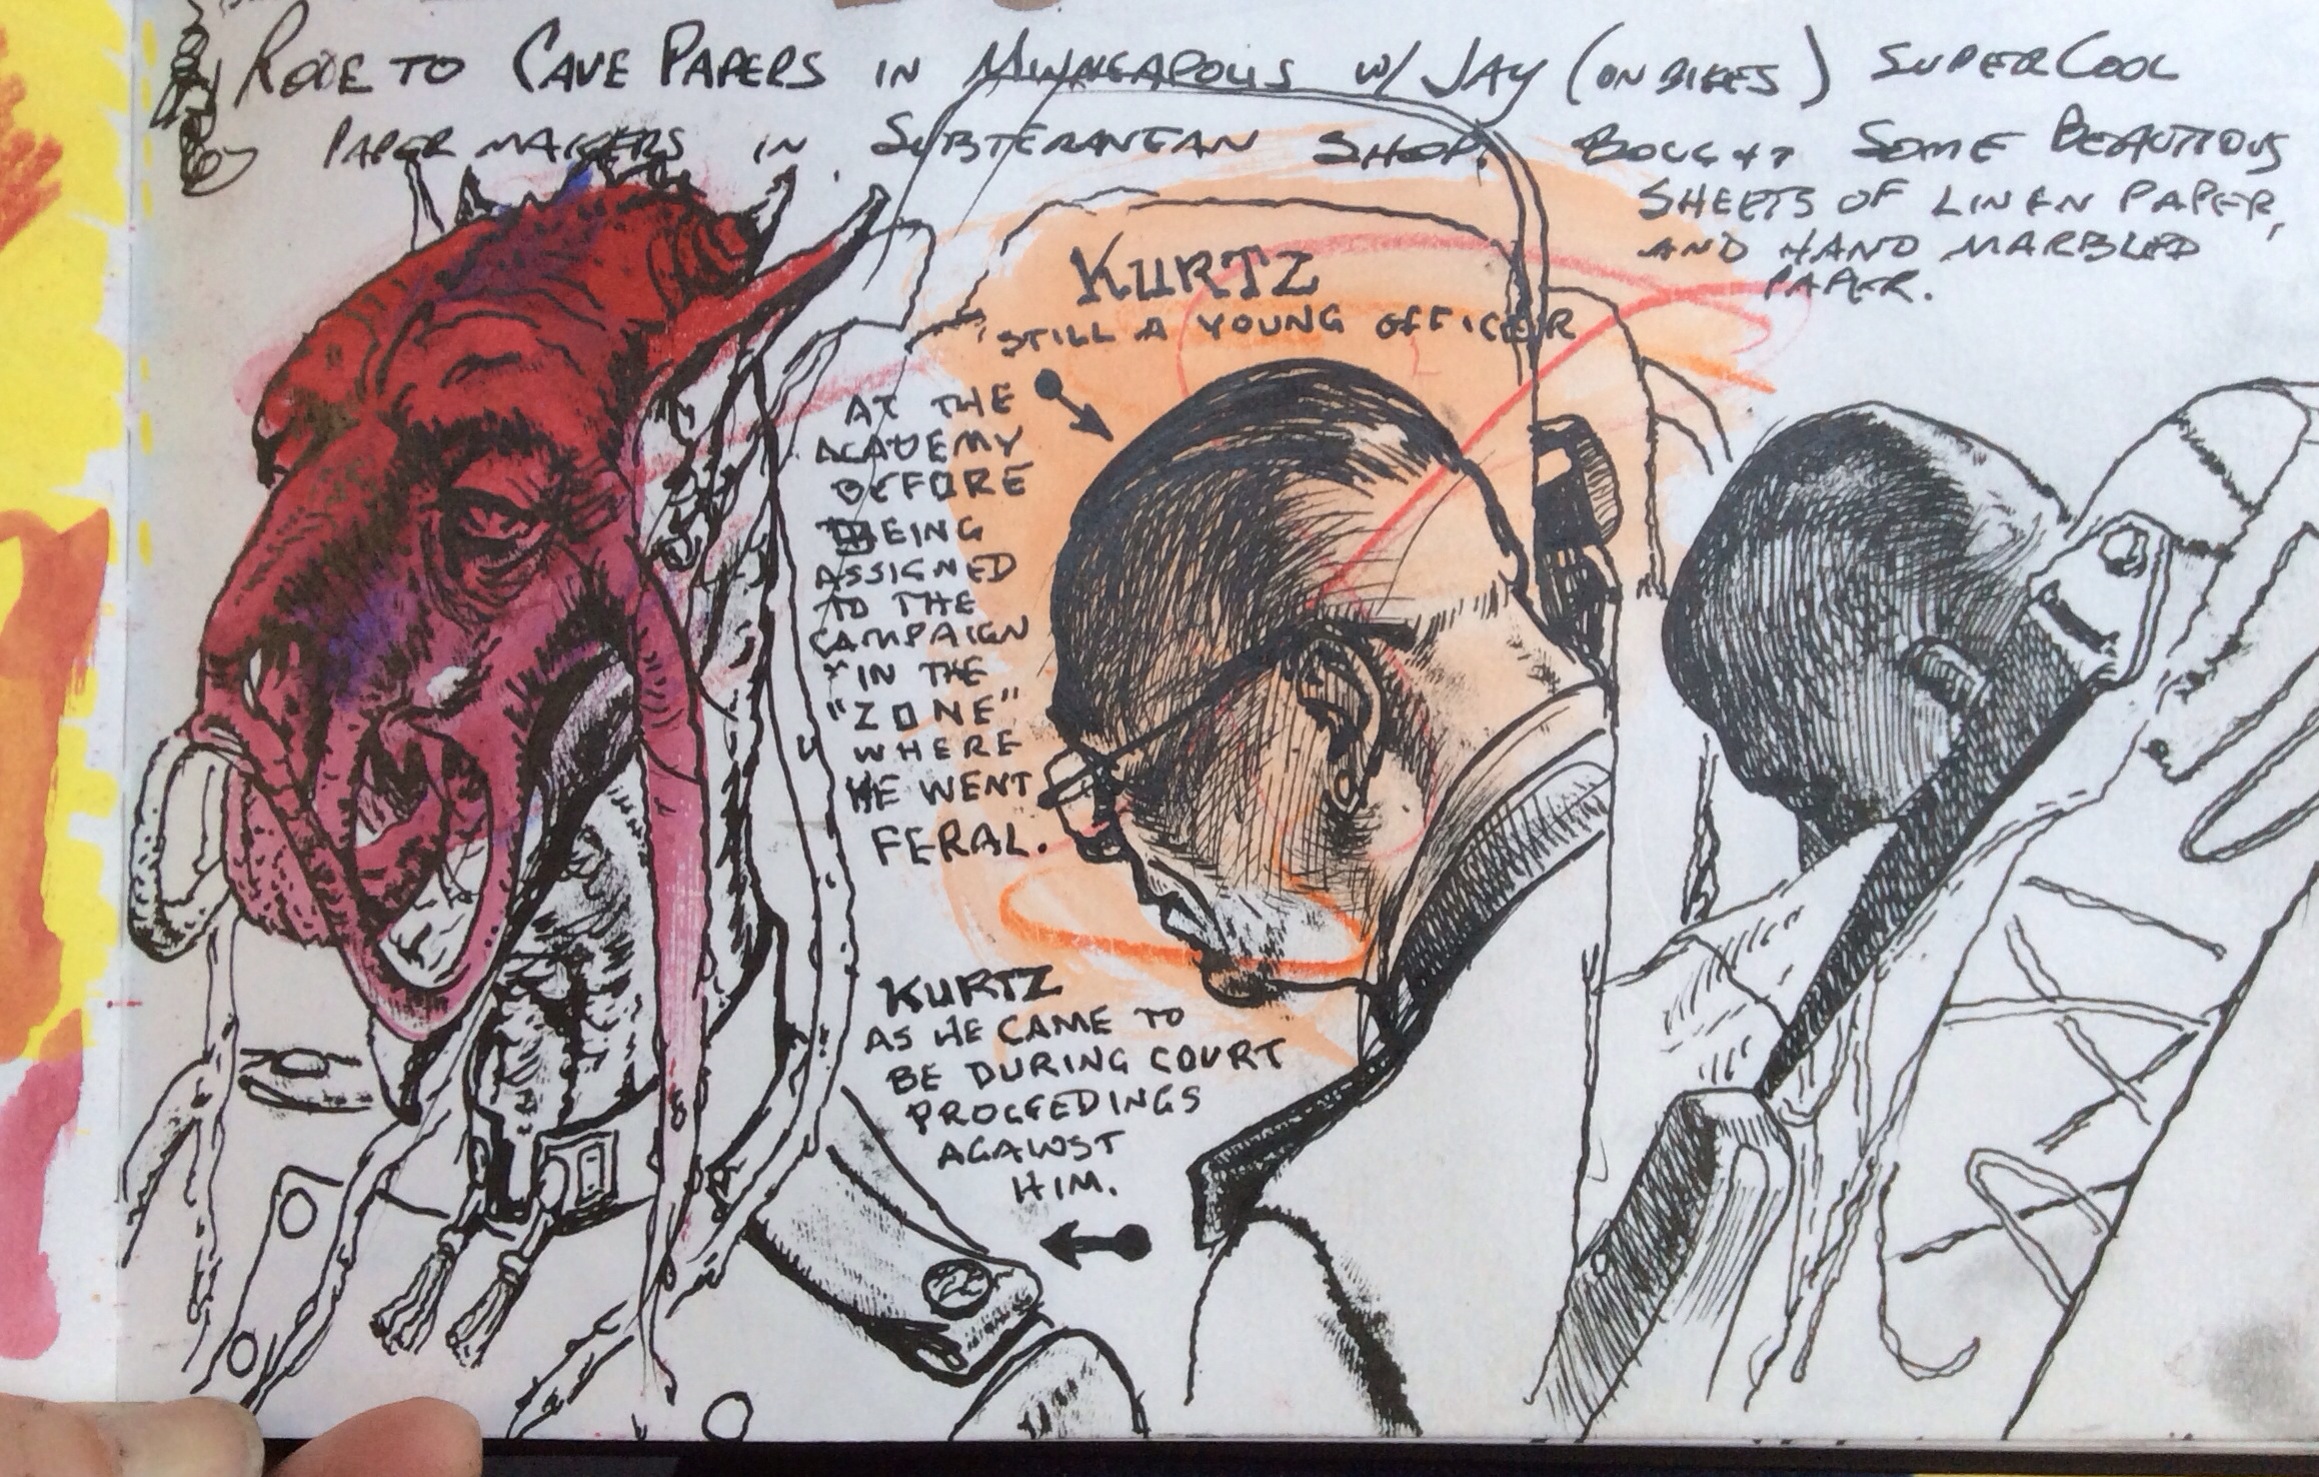 RODE TO CAVE PAPERS IN MINNEAPOLIS W/ JAY (ON BIKES) SUPER COOL
PAPER MAKERS IN SUBTERANEAN SHOP. BOUGHT SOME BEAUTIOUS
SHEETS OF LINEN PAPER,
AND HAND MARBLED
PAPER.
KURTZ
STILL A YOUNG OFFICER
AT THE
ACADEMY
BEFORE
BEING
ASSIGNED
TO THE
CAMPAIGN
"IN THE
"ZONE"
WHERE
HE WENT
FERAL.
KURTZ
AS HE CAME TO
BE DURING COURT
PROCEEDINGS
AGAINST
HIM.